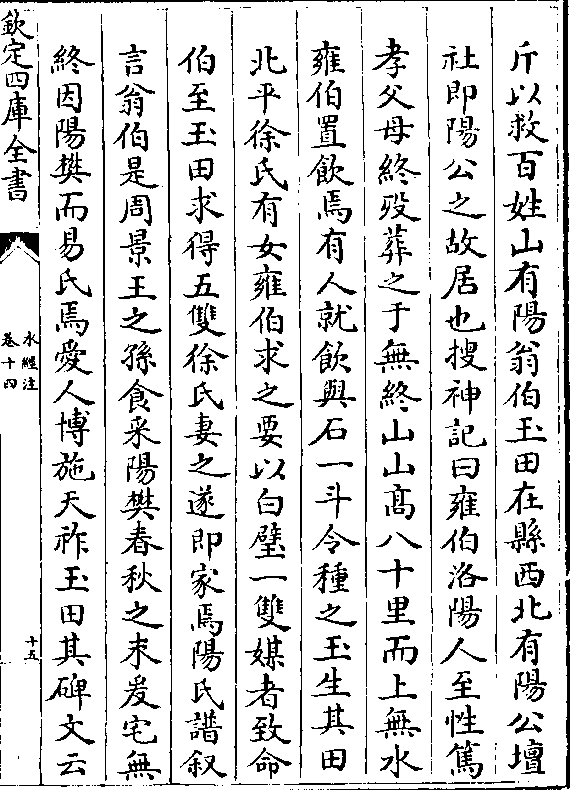 斤以救百姓山有陽翁伯玉田在縣西北有陽公壇
社即陽公之故居也搜神記曰雍伯洛陽人至性篤
孝父母終殁葬之于無終山山髙八十里而上無水
雍伯置飲焉有人就飲與石一斗令種之玉生其田
北平徐氏有女雍伯求之要以白璧一雙媒者致命
伯至玉田求得五雙徐氏妻之遂即家焉陽氏譜叙
言翁伯是周景王之孫食采陽樊春秋之末爰宅無
終因陽樊而易氏焉愛人博施天祚玉田其碑文云
欽定四庫全書
水經注
卷十四
十五